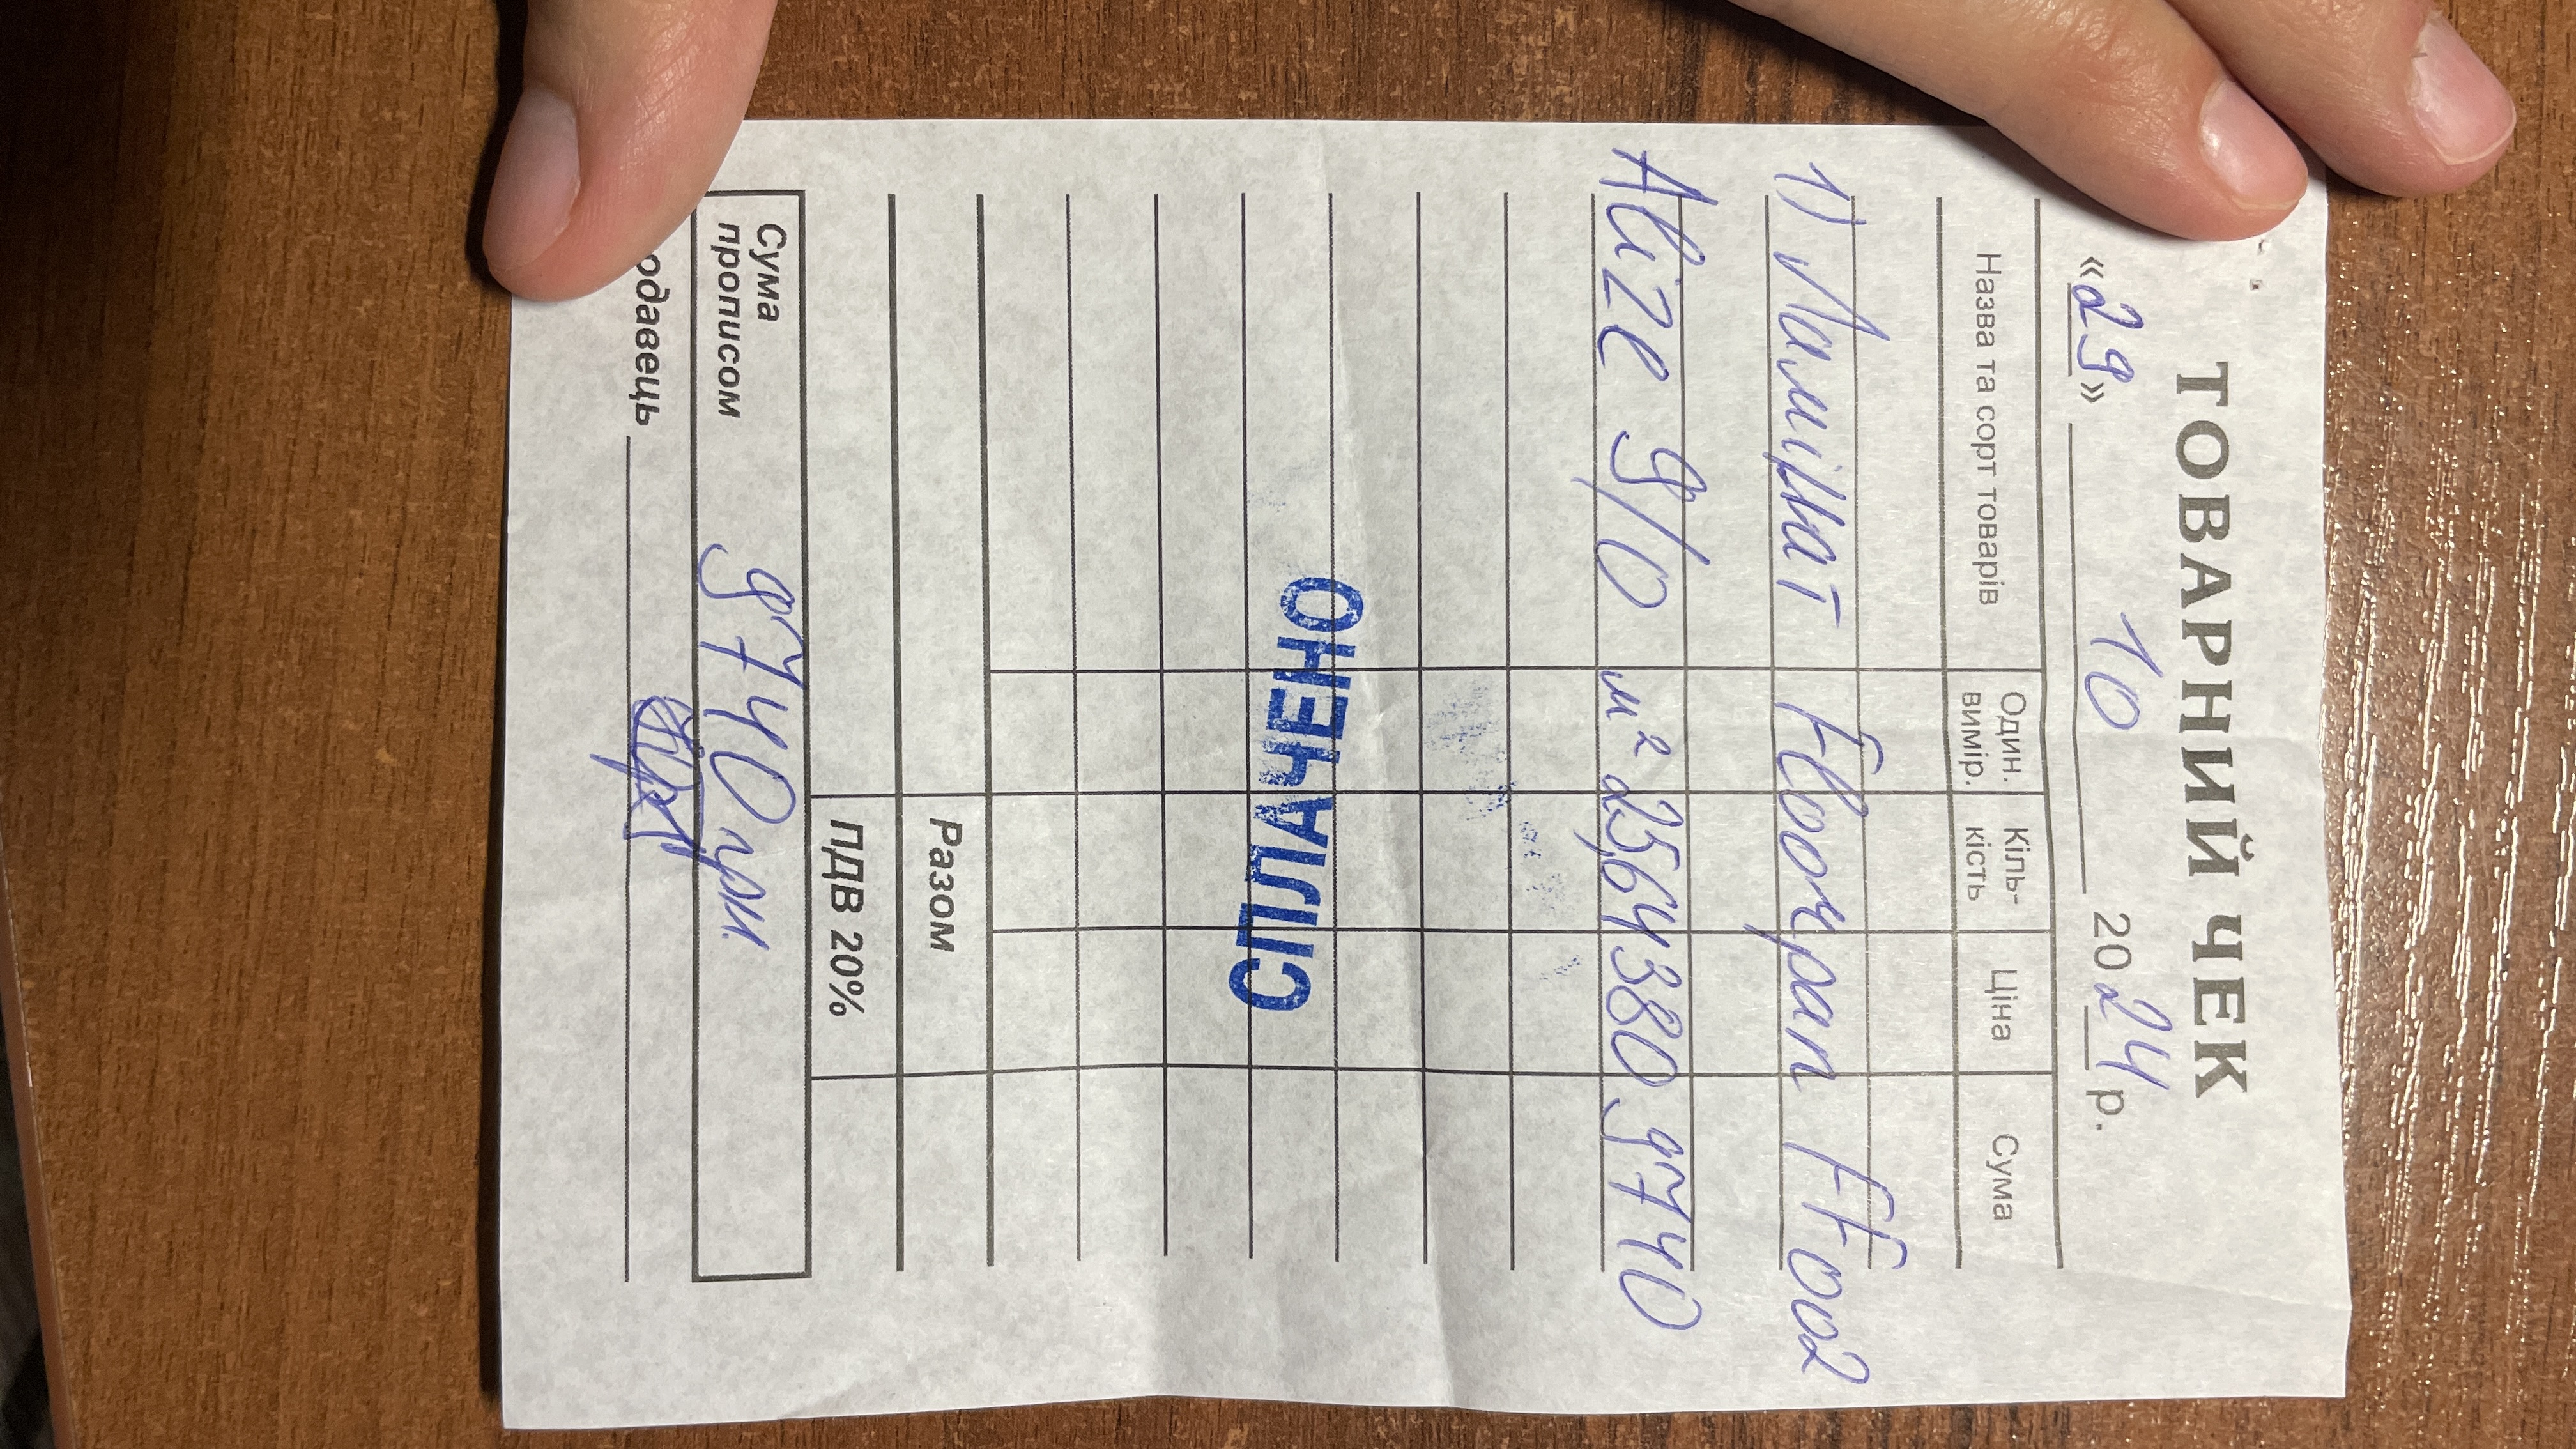 ТОВАРНИЙ ЧЕК
«29» 10 2024 р.
Назва та сорт товарів Один. вимір. Кіль-кість Ціна Сума
1) Ламінат Floorpan FF002
Alize 9/0 м² 25,64 380 9740
СПЛАЧЕНО
Разом
ПДВ 20%
Сума прописом 9740 грн.
одавець